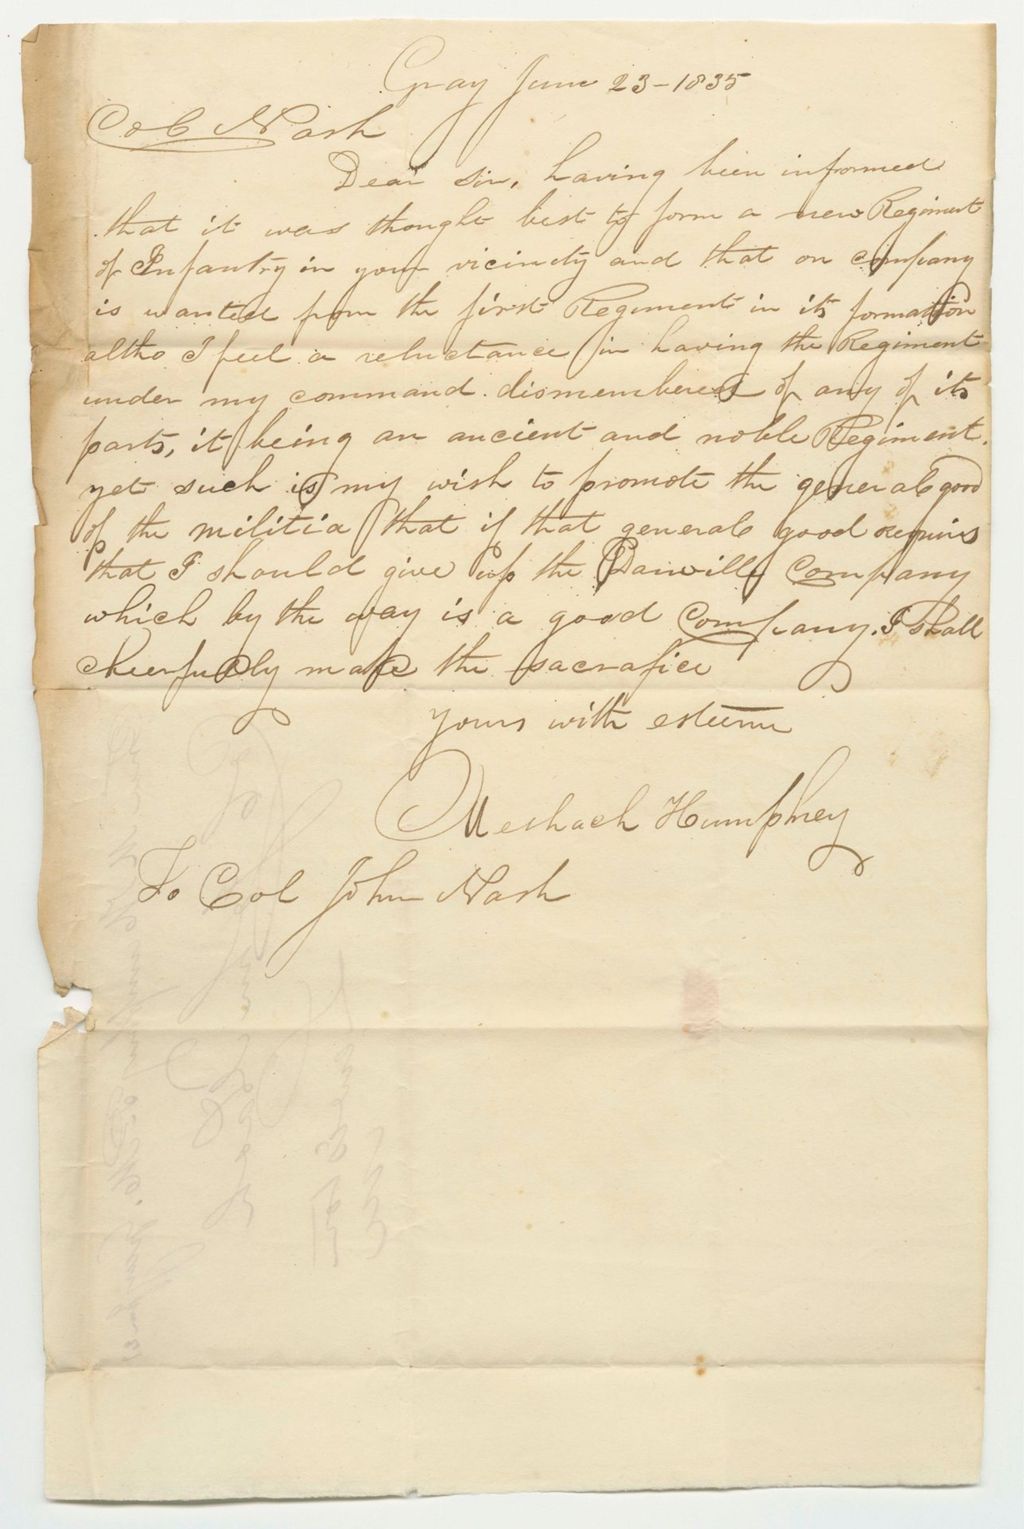 Gray June 23-1835
Col Nash
Dear Sir, having been informed
that it was thought best to form a new Regiment
of Infantry in your vicinity and that on company
is wanted from the first Regiment in its formation
altho I feel a reluctance in having the Regiment
under my command dismembered of any of its
parts, it being an ancient and noble Regiment.
yet such is my wish to promote the general good
of the militia that if that general good requires
that I should give up the Danville Company
which by the way is a good Company. I shall
cheerfully make the sacrafice
yours with esteem
Meshach Humphrey
To Col John Nash